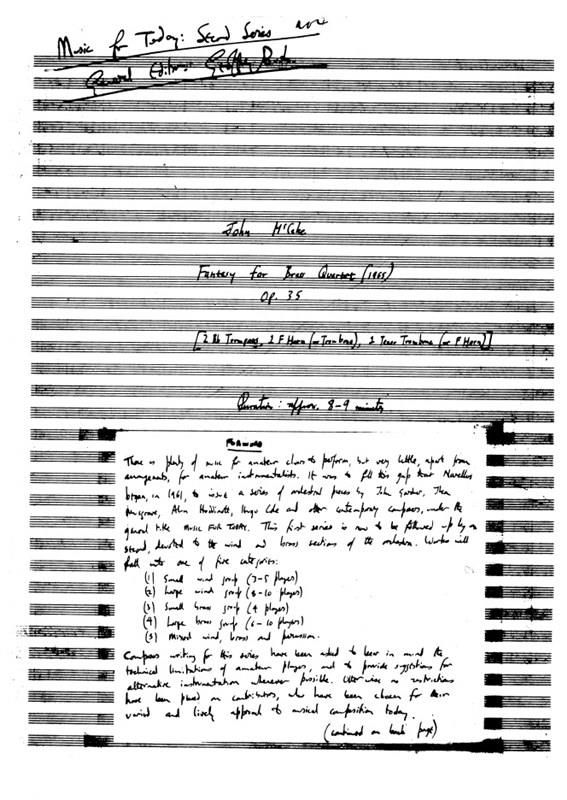 Music for Today: Second Series
General Editor: Geoffrey
John McCabe
Fantasy for Brass Quartet (1965)
Op. 35
[2 Bb Trumpets, 1 F Horn (or Trombone), 1 Tenor Trombone (or F Horn)]
Duration: approx. 8-9 minutes
FOREWORD
There is plenty of music for amateur choirs to perform, but very little, apart from
arrangements, for amateur instrumentalists. It was to fill this gap that Novellos
began, in 1961, to issue a series of orchestral pieces by John Gardner, Thea
Musgrave, Alun Hoddinott, Hugo Cole and other contemporary composers, under the
general title Music For Today. This first series is now to be followed up by a
second, devoted to the wind and brass sections of the orchestra. Works will
fall into one of five categories:
(1) Small wind group (3-5 players)
(2) Large wind group (8-10 players)
(3) Small brass group (4 players)
(4) Large brass group (6-10 players)
(5) Mixed wind, brass and percussion.
Composers writing for this series have been asked to bear in mind the
technical limitations of amateur players, and to provide suggestions for
alternative instrumentation whenever possible. Otherwise no restrictions
have been placed on contributors, who have been chosen for their
varied and lively approach to musical composition today.
(continued on back page)